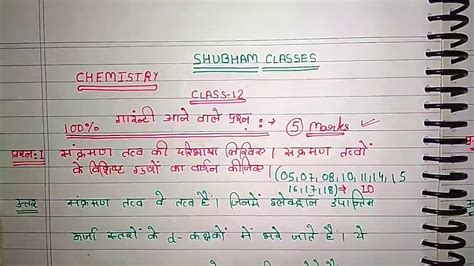 SHUBHAM CLASSES
CHEMISTRY
CLASS-12
100% गारंटी आने वाले प्रश्न :→ 5 Marks
प्रश्न:1 संक्रमण तत्व की परिभाषा लिखिए। संक्रमण तत्वों
के विशिष्ट गुणों का वर्णन कीजिए। (05,07,08,10,11,14,15
16,17,18)→20
उत्तर संक्रमण तत्व वे तत्व हैं। जिनमें इलेक्ट्रॉन उपान्तिम
ऊर्जा स्तरों के d- कक्षकों में भरे जाते है। ये